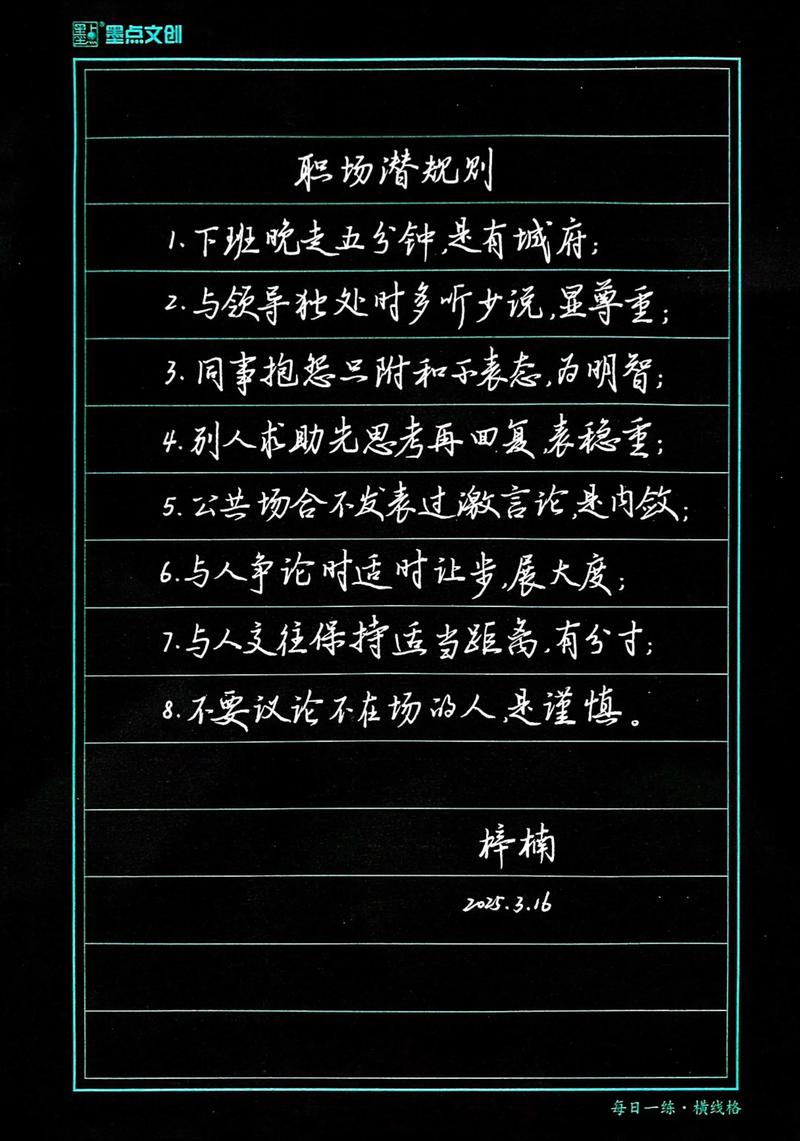 墨点® 墨点文创
职场潜规则
1.下班晚走五分钟,是有城府;
2.与领导独处时多听少说,显尊重;
3.同事抱怨只附和不表态,为明智;
4.别人求助先思考再回复,表稳重;
5.公共场合不发表过激言论,是内敛;
6.与人争论时适时让步,展大度;
7.与人交往保持适当距离,有分寸;
8.不要议论不在场的人,是谨慎。
梓楠
2025.3.16
每日一练·横线格